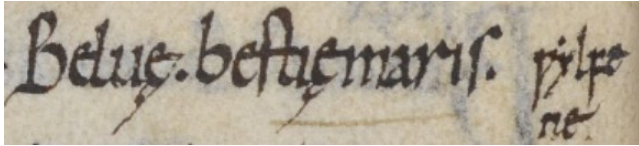 Beluę. bestię maris. ƿẏlfe
ne.